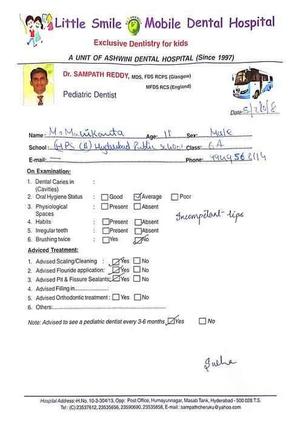 Little Smile Mobile Dental Hospital
Exclusive Dentistry for kids
A UNIT OF ASHWINI DENTAL HOSPITAL (Since 1997)
Dr. SAMPATH REDDY, MDS, FDS RCPS (Glasgow)
MFDS RCS (England)
Pediatric Dentist
Date:
Name: Age: 11 Sex: Male
School: Hyderabad Public school Class: 6A
E-mail: Phone:
On Examination:
1. Dental Caries in :
(Cavities)
2. Oral Hygiene Status : Good Average Poor
3. Physiological : Present Absent
Spaces
4. Habits : Present Absent
5. Irregular teeth : Present Absent
6. Brushing twice : Yes No
Incompetant lips
Adviced Treatment:
1. Advised Scaling/Cleaning : Yes No
2. Advised Flouride application: Yes No
3. Advised Pit & Fissure Sealants: Yes No
4. Advised Filling in
5. Advised Orthodontic treatment : Yes No
6. Others:
Note: Advised to see a pediatric dentist every 3-6 months Yes No
Hospital Address: H.No. 10-3-304/13, Opp: Post Office, Humayunnagar, Masab Tank, Hyderabad - 500 028 T.S.
Tel: (C) 23537612, 23535656, 23590690, 23535858, E-mail : sampathcheruku@yahoo.com